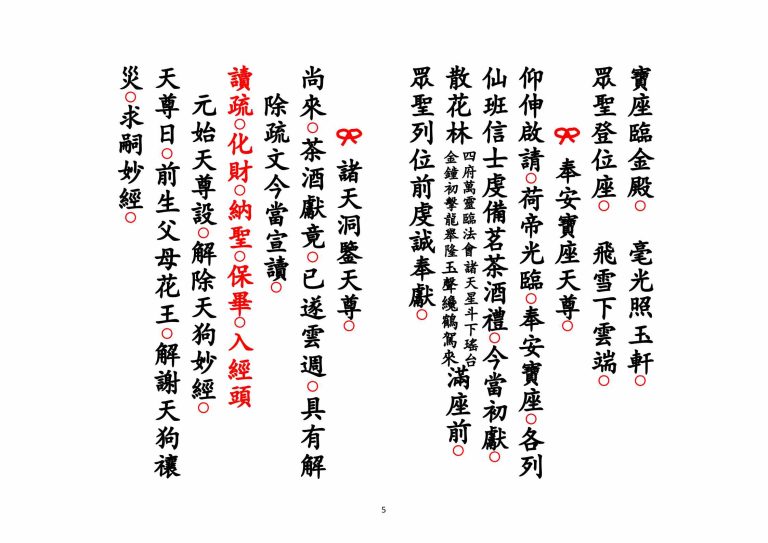 寶座臨金殿○　毫光照玉軒○
眾聖登位座○　飛雪下雲端○
奉安寶座天尊○
仰伸啟請○荷帝光臨○奉安寶座○各列
仙班信士虔備茗茶酒禮○今當初獻○
散花林 四府萬靈臨法會諸天星斗下瑤台 金鐘初擊龍舉隆玉聲纔鶴駕來 滿座前○
眾聖列位前虔誠奉獻○
諸天洞鑒天尊○
尚來○茶酒獻竟○已遂雲週○具有解
除疏文今當宣讀○
讀疏○化財○納聖○保畢○入經頭
元始天尊設○解除天狗妙經○
天尊日○前生父母花王○解謝天狗禳
災○求嗣妙經○
5